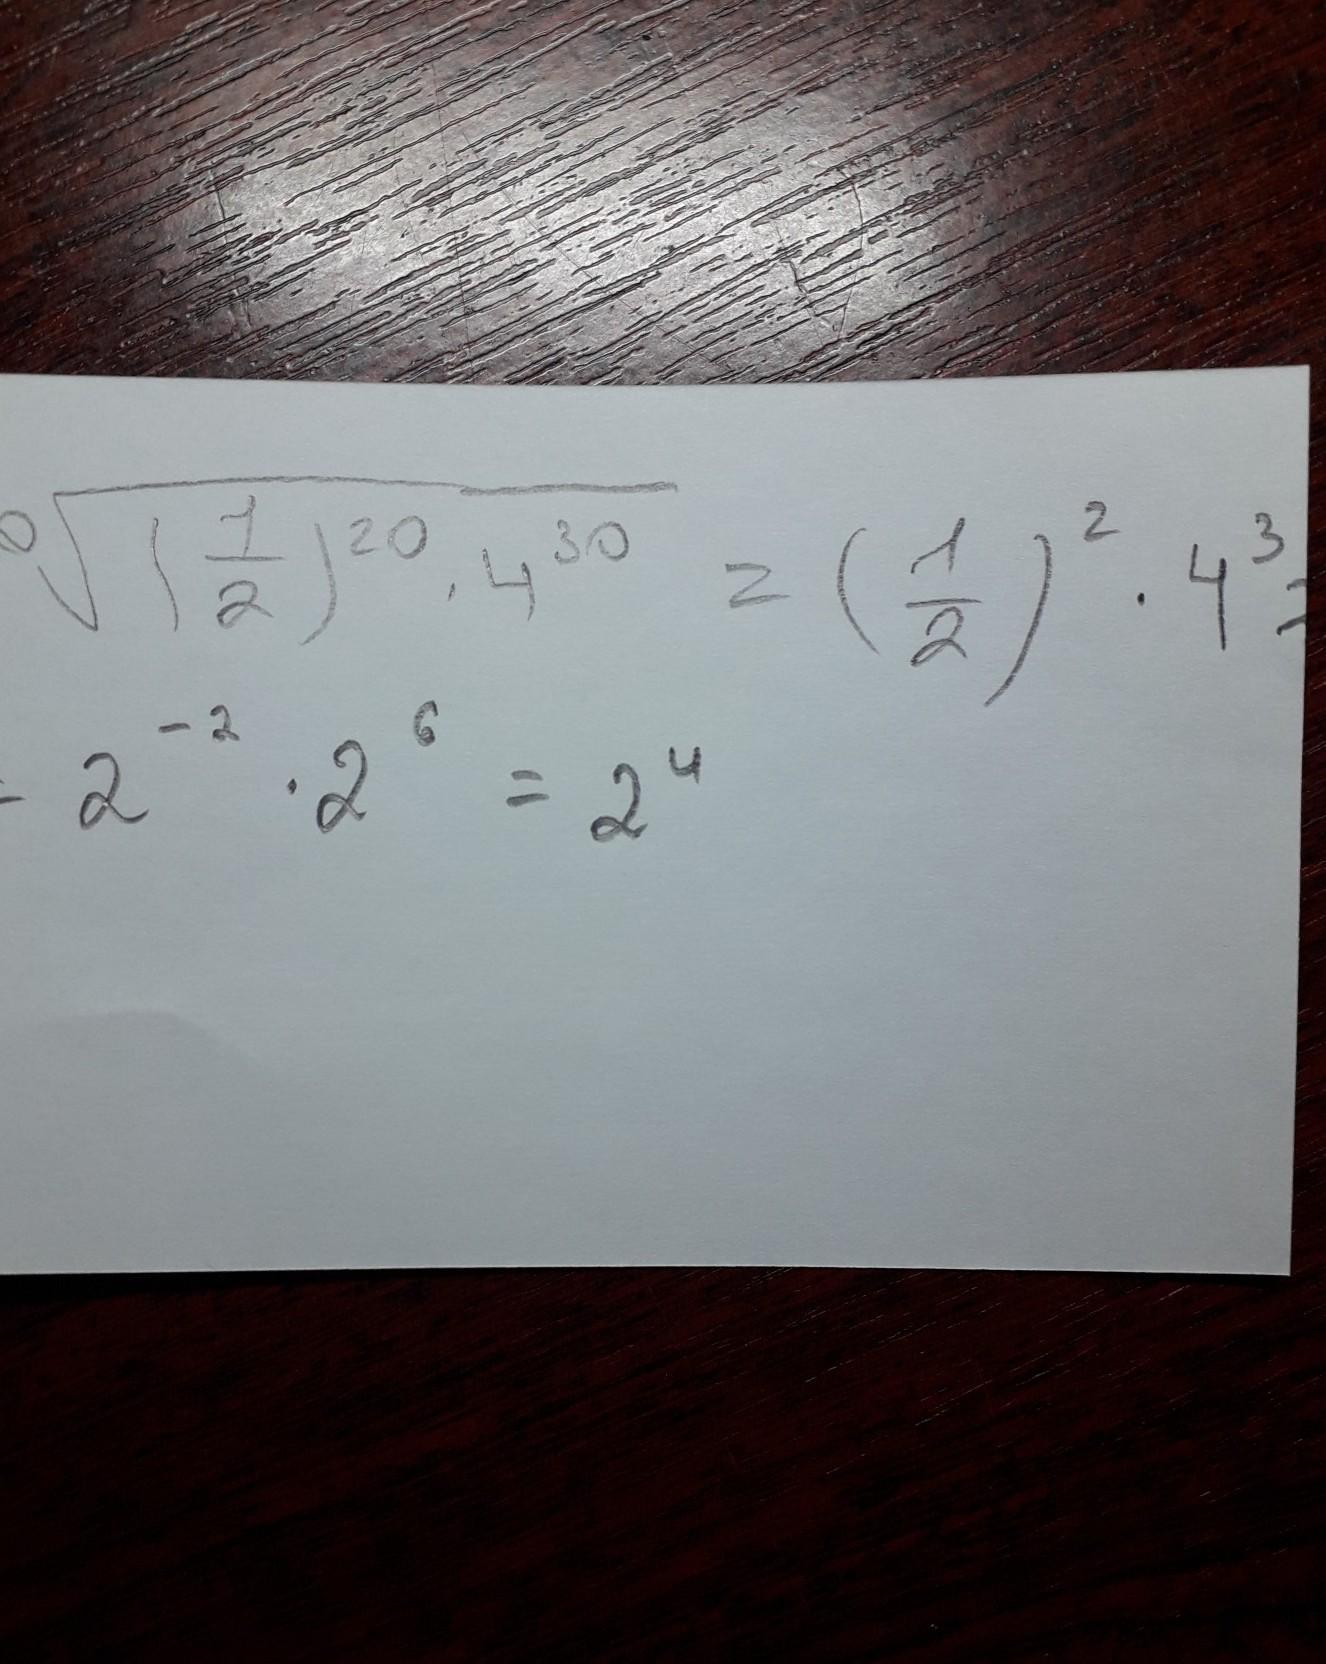 ⁰√((1/2)²⁰ · 4³⁰) = (1/2)² · 4³ =
- 2⁻² · 2⁶ = 2⁴